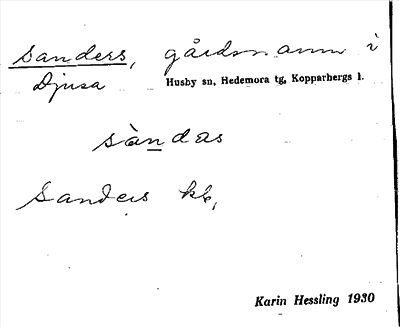 Sanders, gårdsnamn i
Djusa
Husby sn, Hedemora tg, Kopparbergs l.
sàndas
Sanders
Karin Hessling 1930